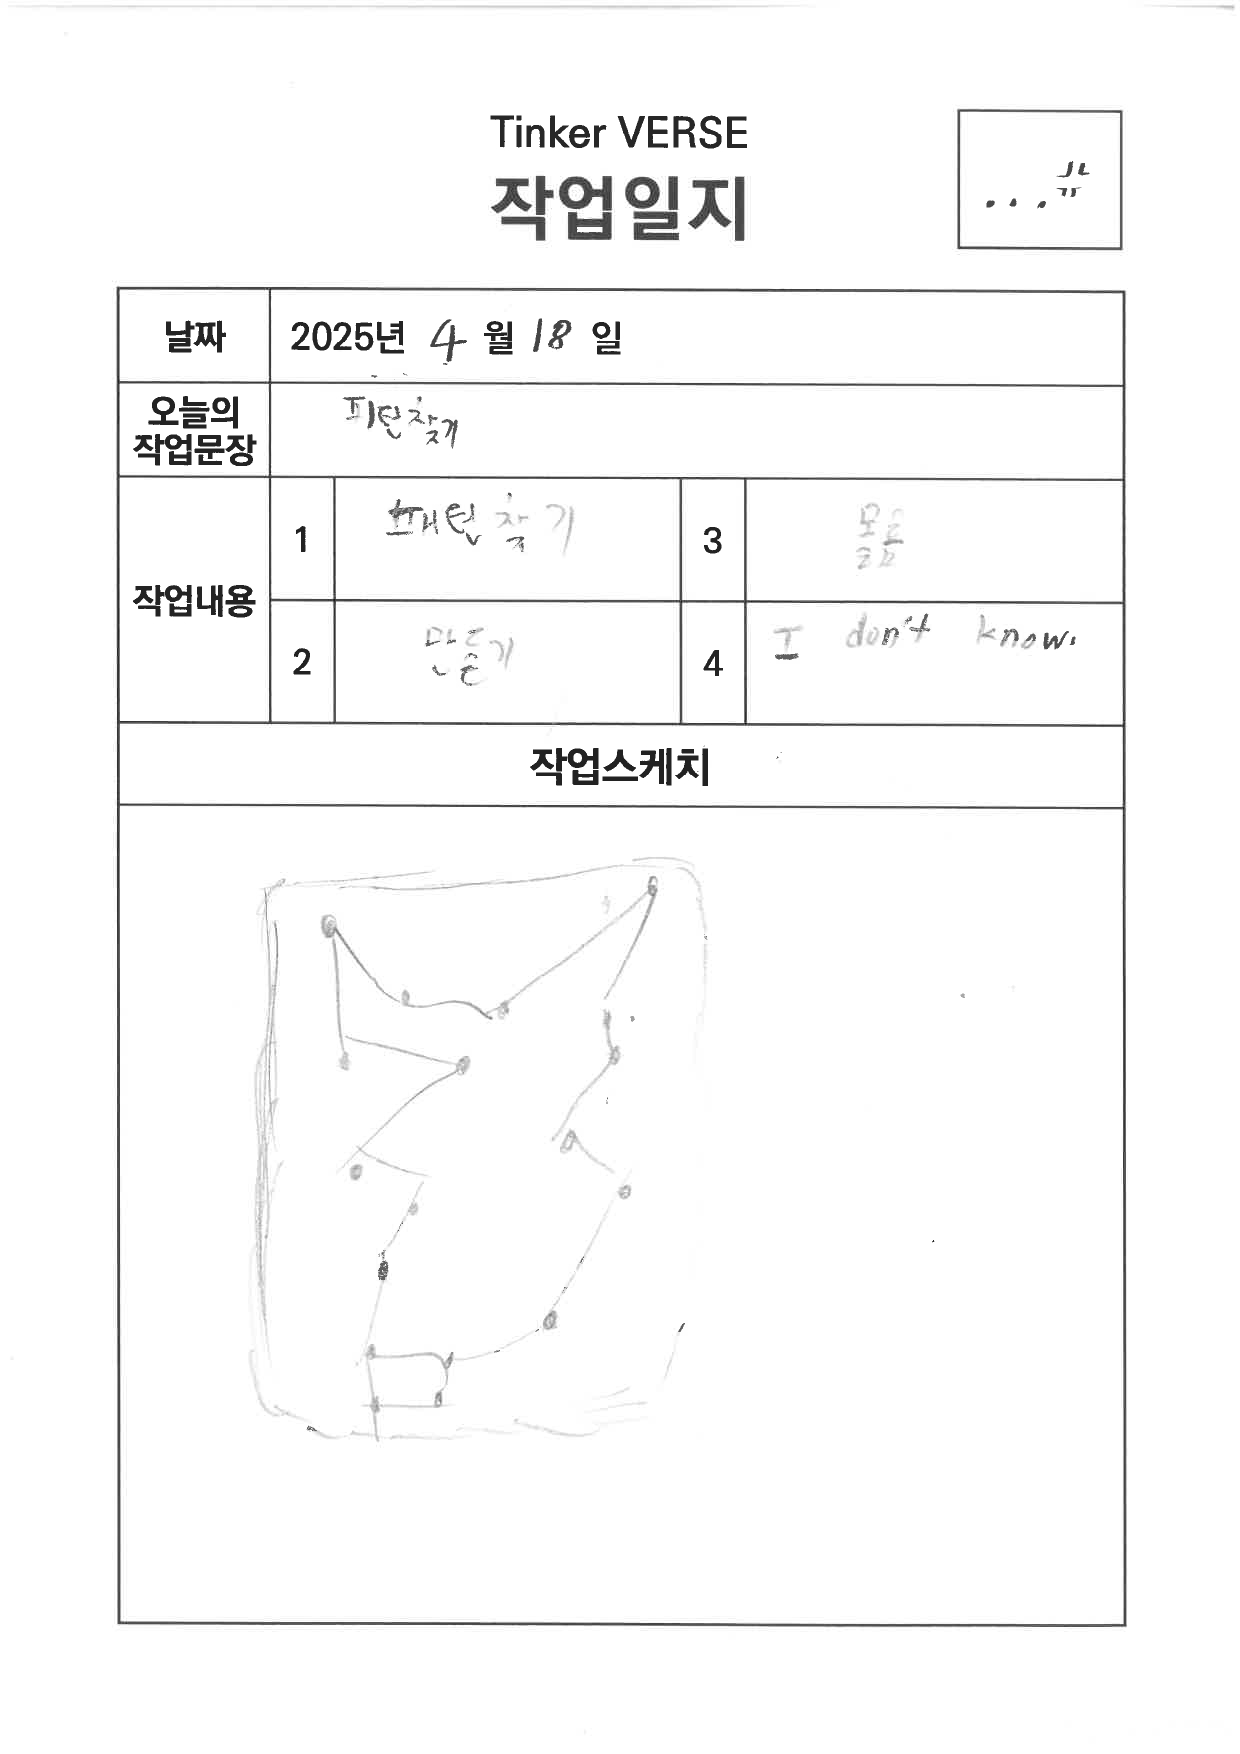 Tinker VERSE
작업일지
날짜
2025년 4 월 18 일
오늘의
작업문장
작업내용
1
패턴 찾기
3
2
만들기
4
I don't know.
작업스케치